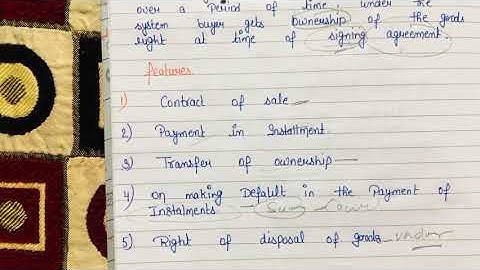 over a Period of time, under the
system buyer gets Ownership of the goods
right at time of signing agreement.
features.
1) Contract of sale
2) Payment in Installment
3) Transfer of ownership
4) On making Defalult in the Payment of
Instalments
5) Right of disposal of goods